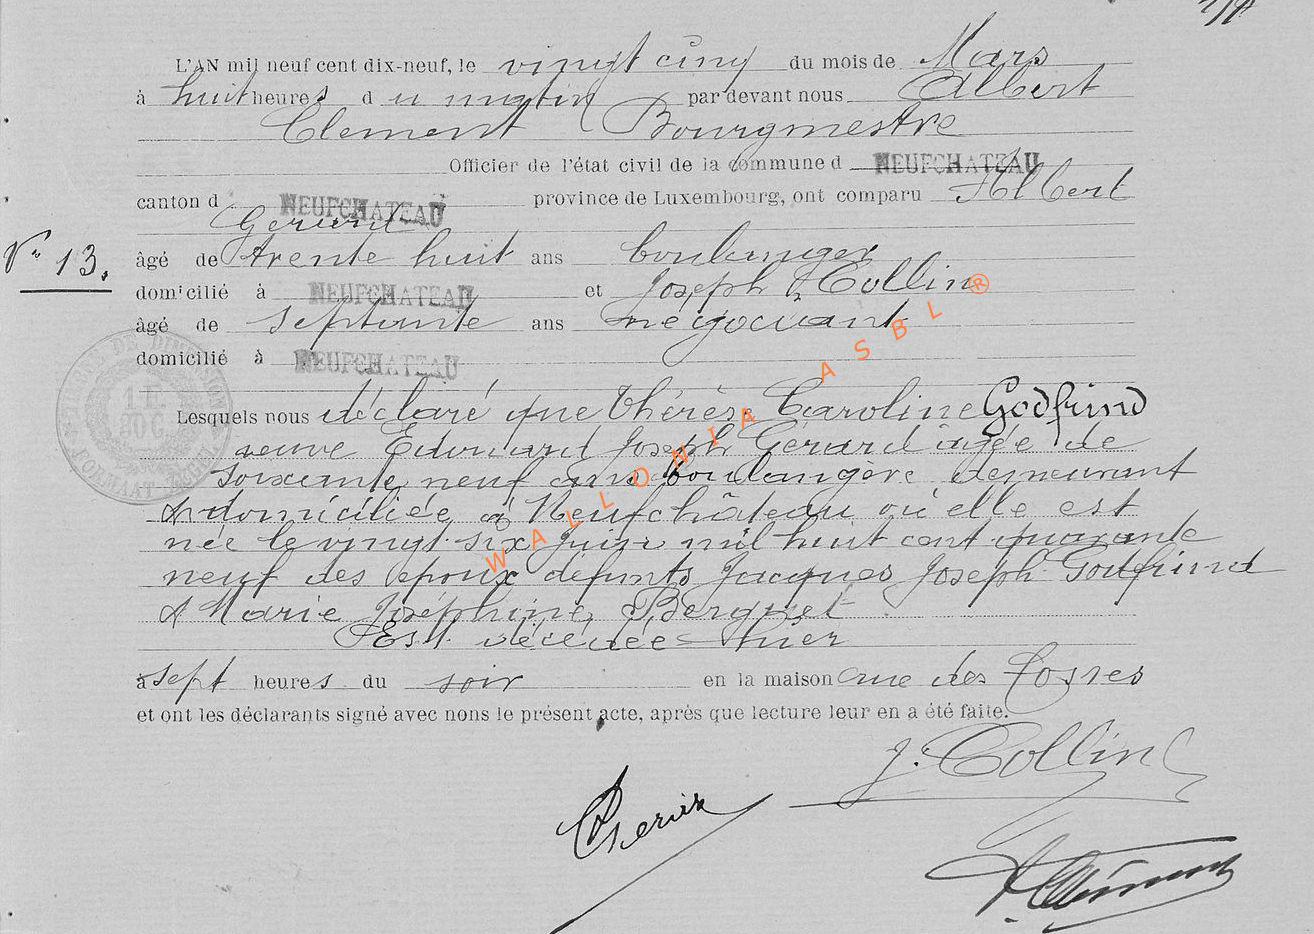 L'AN mil neuf cent dix-neuf, le vingt cinq du mois de Mars
à huit heures du matin par devant nous Albert
Clement Bourgmestre
Officier de l'état civil de la commune d NEUFCHATEAU
canton d NEUFCHATEAU province de Luxembourg, ont comparu Albert
Gérard
N° 13.
âgé de trente huit ans boulanger
domicilié à NEUFCHATEAU et Joseph Collin
âgé de septante ans négociant
domicilié à NEUFCHATEAU
Lesquels nous déclaré que Thérèse Caroline Godfrind
veuve Edouard Joseph Gérard âgée de
soixante neuf ans boulangère demeurant
& domiciliée à Neufchâteau où elle est
née le vingt six juin mil huit cent quarante
neuf des époux défunts Jacques Joseph Godfrind
& Marie Joséphine Berguet
Est décédée hier
à sept heures du soir en la maison rue des
et ont les déclarants signé avec nous le présent acte, après que lecture leur en a été faite.
J. Collin
WALLONIA ASBL ®